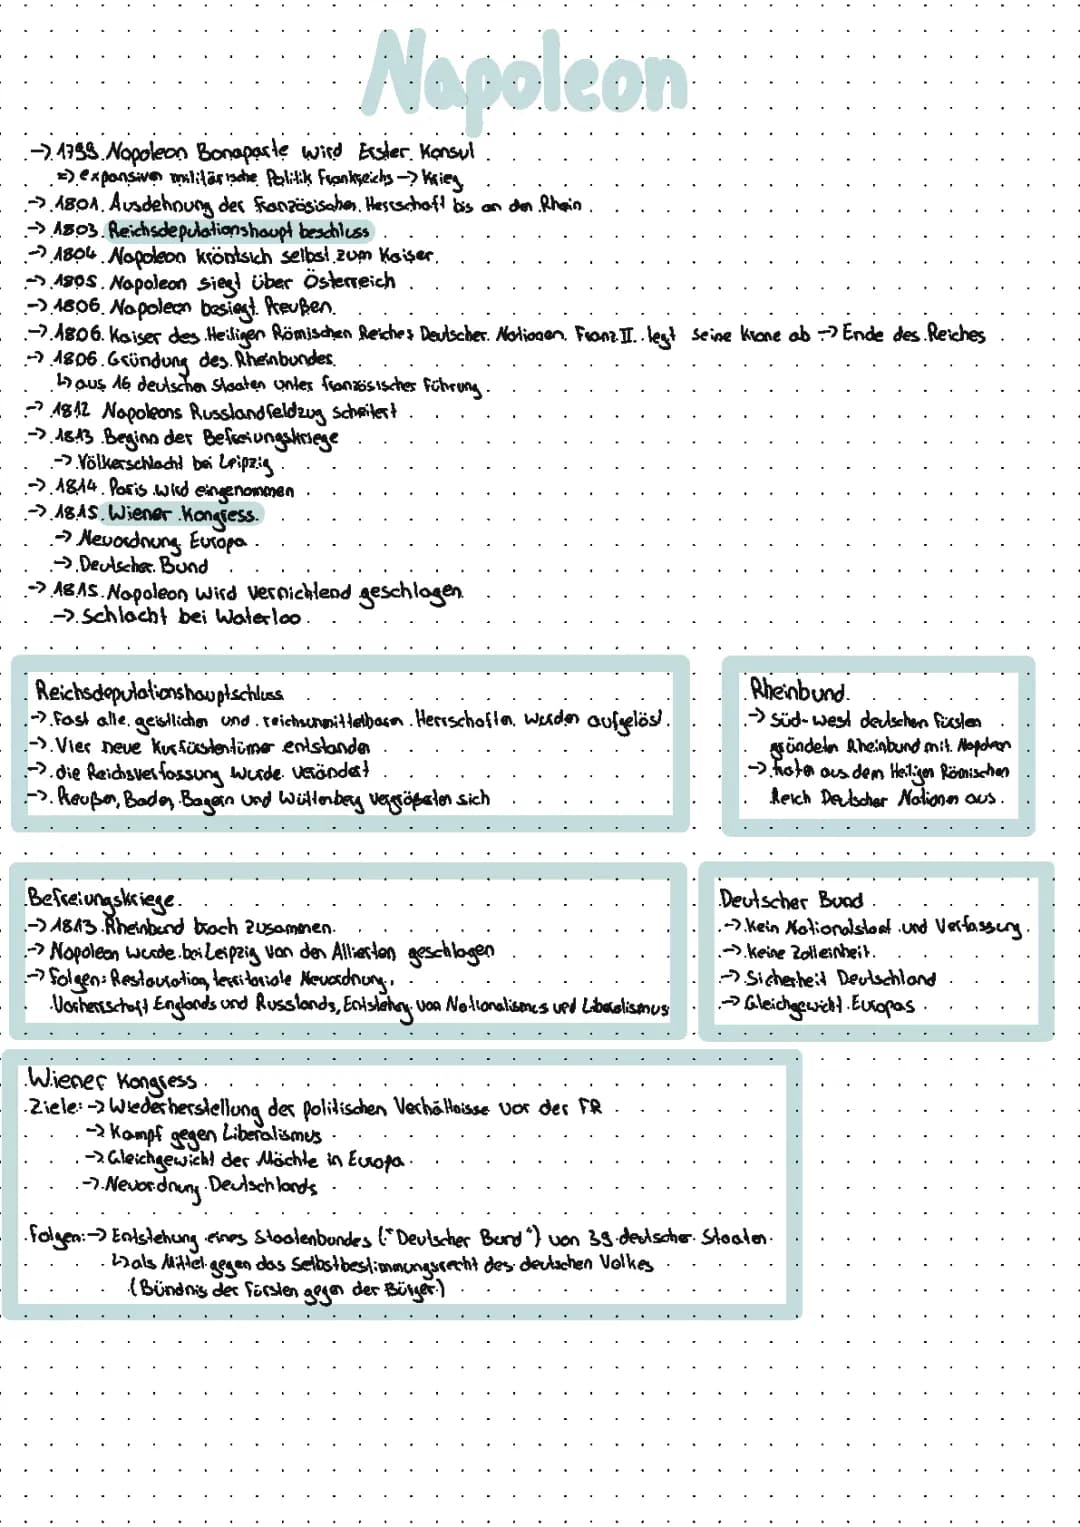 Napoleon
-> 1799 Napoleon Bonaparte wird Erster Konsul
=> expansiven militärische Politik Frankreichs -> Krieg
-> 1801 Ausdehnung der französischen Herrschaft bis an den Rhein
-> 1803 Reichsdeputationshaupt beschluss
-> 1804 Napoleon krönt sich selbst zum Kaiser
-> 1805 Napoleon siegt über Österreich
-> 1806 Napoleon besiegt Preußen
-> 1806 Kaiser des Heiligen Römischen Reiches Deutscher Nationen Franz II. legt seine Krone ab -> Ende des Reiches
-> 1806 Gründung des Rheinbundes
↳ aus 16 deutschen Staaten unter französischer Führung
-> 1812 Napoleons Russlandfeldzug scheitert
-> 1813 Beginn der Befreiungskriege
-> Völkerschlacht bei Leipzig
-> 1814 Paris wird eingenommen
-> 1815 Wiener Kongress
-> Neuordnung Europa
-> Deutscher Bund
-> 1815 Napoleon wird vernichtend geschlagen
-> Schlacht bei Waterloo
Reichsdeputationshauptschluss
-> Fast alle geistlichen und reichsunmittelbaren Herrschaften wurden aufgelöst
-> Vier neue Kurfürstentümer entstanden
-> die Reichsverfassung wurde verändert
-> Preußen, Baden, Bayern und Württenberg vergrößerten sich
Rheinbund
-> süd-west deutschen Fürsten
gründeten Rheinbund mit Napoleon
-> traten aus dem Heiligen Römischen
Reich Deutscher Nationen aus
Befreiungskriege
-> 1813 Rheinbund brach zusammen
-> Napoleon wurde bei Leipzig von den Alliierten geschlagen
-> Folgen: Restauration, territoriale Neuordnung,
Vorherrschaft Englands und Russlands, Entstehng von Nationalismus und Liberalismus
Deutscher Bund
-> Kein Nationalstaat und Verfassung
-> keine Zolleinheit
-> Sicherheit Deutschland
-> Gleichgewicht Europas
Wiener Kongress
Ziele: -> Wiederherstellung der politischen Verhältnisse vor der FR
-> Kampf gegen Liberalismus
-> Gleichgewicht der Mächte in Europa
-> Neuordnung Deutschlands
Folgen: -> Entstehung eines Staatenbundes ("Deutscher Bund") von 39 deutscher Staaten
↳ als Mittel gegen das Selbstbestimmungsrecht des deutschen Volkes
(Bündnis der Fürsten gegen der Bürger)